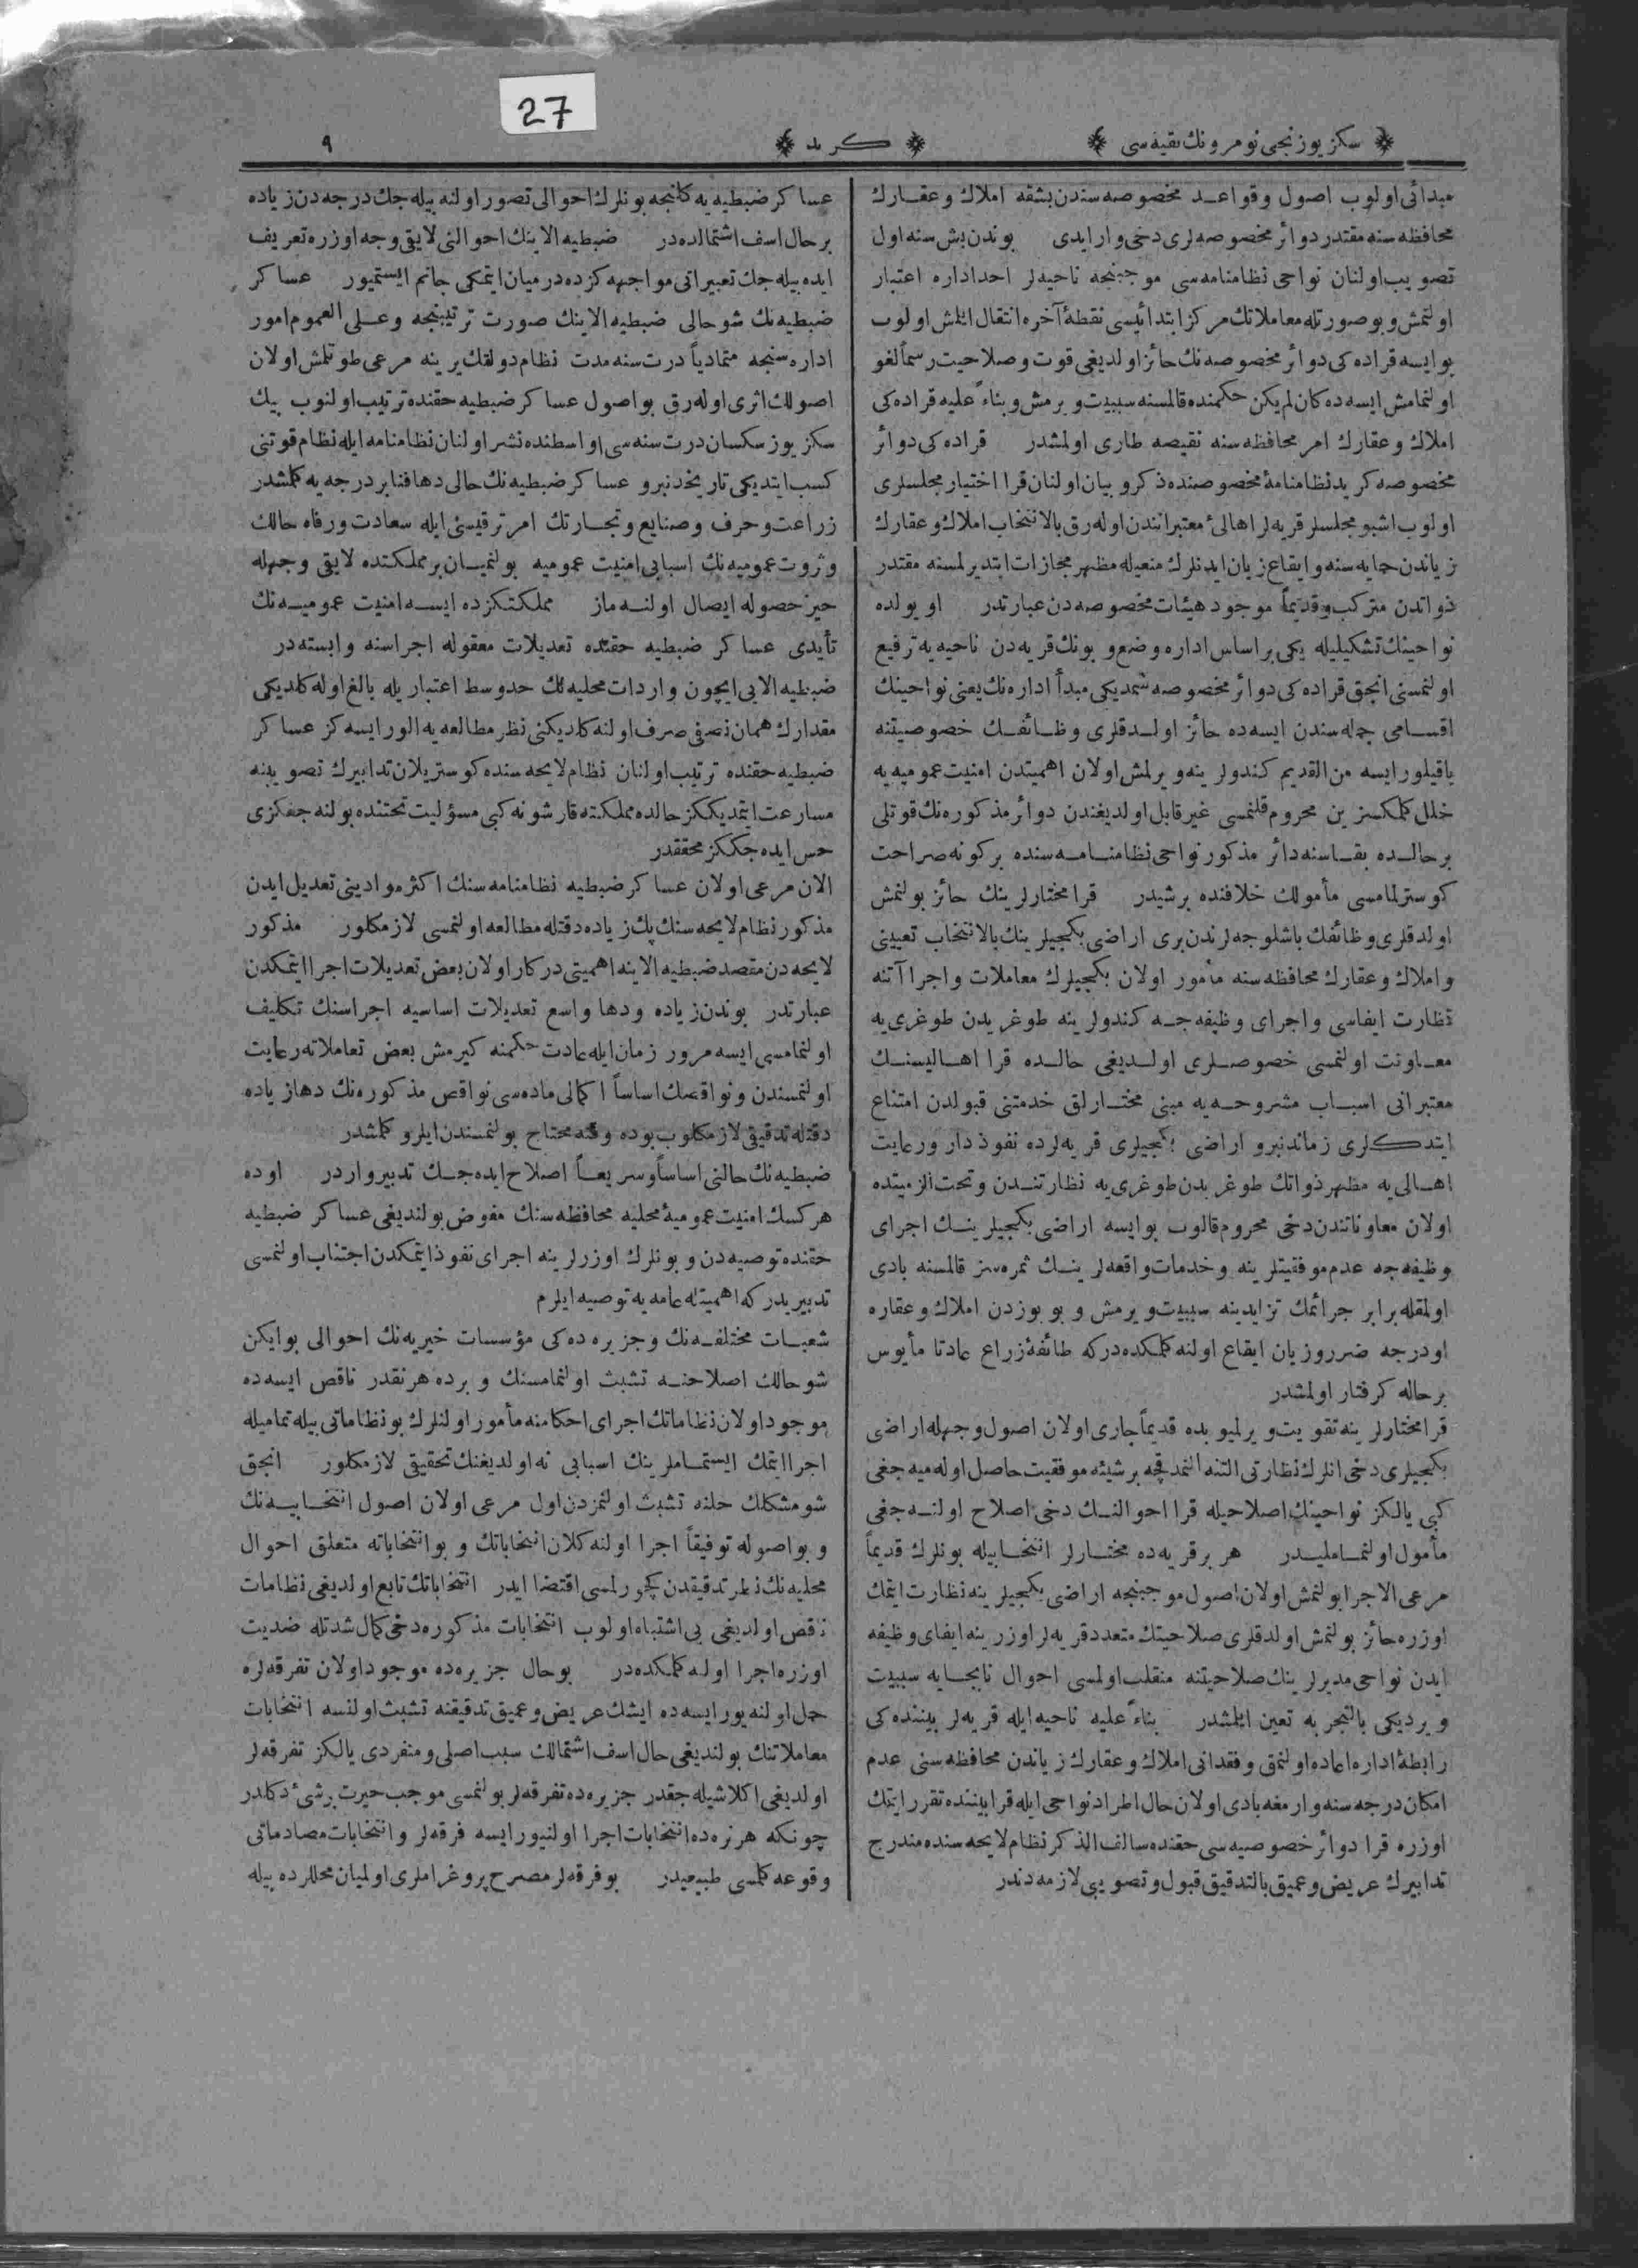 27
سكز يوزنجى نومرونك بقيه سى
كريد
٩
مبدائى اولوب اصول وقواعد مخصوصه سندن بشقه املاك وعقارك
محافظه سنه مقتدر دوائر مخصوصه لرى دخى وار ايدى بوندن بش سنه اول
تصويب اولنان نواحى نظامنامه سى موجبنجه ناحيه لر احد اداره اعتبار
اولنمش وبو صورتله معاملاتك مركز ابتدائيسى نقطۀ آخره انتقال ايلمش اولوب
بو ايسه قراده كى دوائر مخصوصه نك حائز اولديغى قوت وصلاحيت رسماً لغو
اولنمامش ايسه ده كان لم يكن حكمنده قالمسنه سببيت ويرمش وبناءً عليه قراده كى
املاك وعقارك امر محافظه سنه نقيصه طارى اولمشدر قراده كى دوائر
مخصوصه كريد نظامنامۀ مخصوصنده ذكر وبيان اولنان قرا اختيار مجلسلرى
اولوب اشبو مجلسلر قريه لر اهالئ معتبرانندن اوله رق بالانتخاب املاك وعقارك
زياندن حمايه سنه وايقاع زيان ايدنلرك منعيله مظهر مجازات ايتديرلمسنه مقتدر
ذواتدن متركب وقديماً موجود هيئات مخصوصه دن عبارتدر او يولده
نواحينك تشكيليله يكى بر اساس اداره وضع و بونك قريه دن ناحيه يه ترفيع
اولنمسنى انجق قراده كى دوائر مخصوصه شمديكى مبدأ اداره نك يعنى نواحينك
اقسامى جمله سندن ايسه ده حائز اولدقلرى وظائفك خصوصيتنه
باقيلور ايسه من القديم كندولرينه ويرلمش اولان اهميتدن امنيت عموميه يه
خلل كلمكسزين محروم قلنمسى غير قابل اولديغندن دوائر مذكوره نك قوتلى
بر حالده بقاسنه دائر مذكور نواحى نظامنامه سنده بر كونه صراحت
كوسترلمامسى مأمولك خلافنده برشيدر قرا مختارلرينك حائز بولنمش
اولدقلرى وظائفك باشلوجه لرندن برى اراضى بكجيلرينك بالانتخاب تعيينى
واملاك وعقارك محافظه سنه مأمور اولان بكجيلرك معاملات واجراآتنه
نظارت ايفاسى واجراى وظيفه جه كندولرينه طوغريدن طوغرى يه
معاونت اولنمسى خصوصلرى اولديغى حالده قرا اهاليسنك
معتبرانى اسباب مشروحه يه مبنى مختارلق خدمتنى قبولدن امتناع
ايتدكلرى زماندنبرو اراضى بكجيلرى قريه لرده نفوذدار ورعايت
اهالى يه مظهر ذواتك طوغريدن طوغرى يه نظارتندن وتحت الزميتده
اولان معاوناتندن دخى محروم قالوب بو ايسه اراضى بكجيلرينك اجراى
وظيفه جه عدم موفقيتلرينه وخدمات واقعه لرينك ثمره سز قالمسنه بادى
اولمقله برابر جرائمك تزايدينه سببيت ويرمش و بو يوزدن املاك وعقاره
اودرجه ضرر وزيان ايقاع اولنه كلمكده دركه طائفۀ زراع عادتا مأيوس
بر حاله كرفتار اولمشدر
قرا مختارلرينه تقويت ويرلميوبده قديماً جارى اولان اصول وجهله اراضى
بكجيلرى دخى انلرك نظارتى التنه النمدقچه برشيئه موفقيت حاصل اوله ميه جغى
كبى يالكز نواحينك اصلاحيله قرا احوالنك دخى اصلاح اولنه جغى
مأمول اولنماميلدر هر بر قريه ده مختارلر انتخابيله بونلرك قديماً
مرعى الاجرا بولنمش اولان اصول موجبنجه اراضى بكجيلرينه نظارت ايتمك
اوزره حائز بولنمش اولدقلرى صلاحيتك متعدد قريه لر اوزرينه ايفاى وظيفه
ايدن نواحى مديرلرينك صلاحيتنه منقلب اولمسى احوال نابجايه سببيت
ويرديكى بالتجربه تعين ايلمشدر بناءً عليه ناحيه ايله قريه لر بيننده كى
رابطۀ اداره اعاده اولنمق وفقدانى املاك وعقارك زياندن محافظه سنى عدم
امكان درجه سنه وارمغه بادى اولان حال اطراد نواحى ايله قرا بيننده تقرر ايتمك
اوزره قرا دوائر خصوصيه سى حقنده سالف الذكر نظام لايحه سنده مندرج
تدابيرك عريض وعميق بالتدقيق قبول وتصويبى لازمه دندر
عساكر ضبطيه يه كلنجه بونلرك احوالى تصور اولنه بيله جك درجه دن زياده
بر حال اسف اشتمالده در ضبطيه الاينك احوالنى لايقى وجه اوزره تعريف
ايده بيله جك تعبيراتى مواجهه كزده درميان ايتمكى جانم ايستميور عساكر
ضبطيه نك شو حالى ضبطيه الاينك صورت ترتيبنجه وعلى العموم امور
اداره سنجه متمادياً درت سنه مدت نظام دولتك يرينه مرعى طوتلمش اولان
اصولك اثرى اوله رق بو اصول عساكر ضبطيه حقنده ترتيب اولنوب بيك
سكز يوز سكسان درت سنه سى اواسطنده نشر اولنان نظامنامه ايله نظام قوتنى
كسب ايتديكى تاريخدنبرو عساكر ضبطيه نك حالى دها فنا بر درجه يه كلمشدر
زراعت وحرف وصنايع وتجارتك امر ترقيسى ايله سعادت ورفاه حالك
وثروت عموميه نك اسبابى امنيت عموميه بولنميان بر مملكتده لايقى وجهله
حيز حصوله ايصال اولنه ماز مملكتكزده ايسه امنيت عموميه نك
تأييدى عساكر ضبطيه حقنده تعديلات معقوله اجراسنه وابسته در
ضبطيه الايى ايچون واردات محليه نك حد وسط اعتباريله بالغ اوله كلديكى
مقدارك همان نصفى صرف اولنه كلديكنى نظر مطالعه يه الور ايسه كز عساكر
ضبطيه حقنده ترتيب اولنان نظام لايحه سنده كوستريلان تدابيرك تصويبنه
مسارعت ايتمديككز حالده مملكته قارشو نه كبى مسؤليت تحتنده بولنه جغكزى
حس ايده جككز محققدر
الان مرعى اولان عساكر ضبطيه نظامنامه سنك اكثر موادينى تعديل ايدن
مذكور نظام لايحه سنك پك زياده دقتله مطالعه اولنمسى لازمكلور مذكور
لايحه دن مقصد ضبطيه الاينه اهميتى دركار اولان بعض تعديلات اجرا ايتمكدن
عبارتدر بوندن زياده ودها واسع تعديلات اساسيه اجراسنك تكليف
اولنمامسى ايسه مرور زمان ايله عادت حكمنه كيرمش بعض تعاملاته رعايت
اولنمسندن ونواقصك اساساً اكمالى ماده سى نواقص مذكوره نك دها زياده
دقتله تدقيقى لازمكلوبده وقته محتاج بولنمسندن ايلرو كلمشدر
ضبطيه نك حالنى اساساً وسريعاً اصلاح ايده جك تدبير واردر اوده
هركسك امنيت عموميۀ محليه محافظه سنك مفوض بولنديغى عساكر ضبطيه
حقنده توصيه دن و بونلرك اوزرلرينه اجراى نفوذ ايتمكدن اجتناب اولنمسى
تدبيريدركه اهميتله عامه يه توصيه ايلرم
شعبات مختلفه نك وجزيره ده كى مؤسسات خيريه نك احوالى بو ايكن
شو حالك اصلاحنه تشبث اولنمامسنك و برده هر نقدر ناقص ايسه ده
موجود اولان نظاماتك اجراى احكامنه مأمور اولنلرك بو نظاماتى بيله تماميله
اجرا ايتمك ايستماملرينك اسبابى نه اولديغنك تحقيقى لازمكلور انجق
شو مشكلك حلنه تشبث اولنمزدن اول مرعى اولان اصول انتخابيه نك
و بو اصوله توفيقاً اجرا اولنه كلان انتخاباتك و بو انتخاباته متعلق احوال
محليه نك نظر تدقيقدن كچورلمسى اقتضا ايدر انتخاباتك تابع اولديغى نظامات
ناقص اولديغى بى اشتباه اولوب انتخابات مذكوره دخى كمال شدتله ضديت
اوزره اجرا اولنه كلمكده در بو حال جزيره ده موجود اولان تفرقه لره
حمل اولنه يور ايسه ده ايشك عريض وعميق تدقيقنه تشبث اولنسه انتخابات
معاملاتنك بولنديغى حال اسف اشتمالك سبب اصلى ومنفردى يالكز تفرقه لر
اولديغى اكلاشيله جقدر جزيره ده تفرقه لر بولنمسى موجب حيرت برشئ دكلدر
چونكه هر نره ده انتخابات اجرا اولنيور ايسه فرقه لر وانتخابات مصادماتى
وقوعه كلمسى طبيعيدر بو فرقه لر مصرح پروغراملرى اولميان محللرده بيله